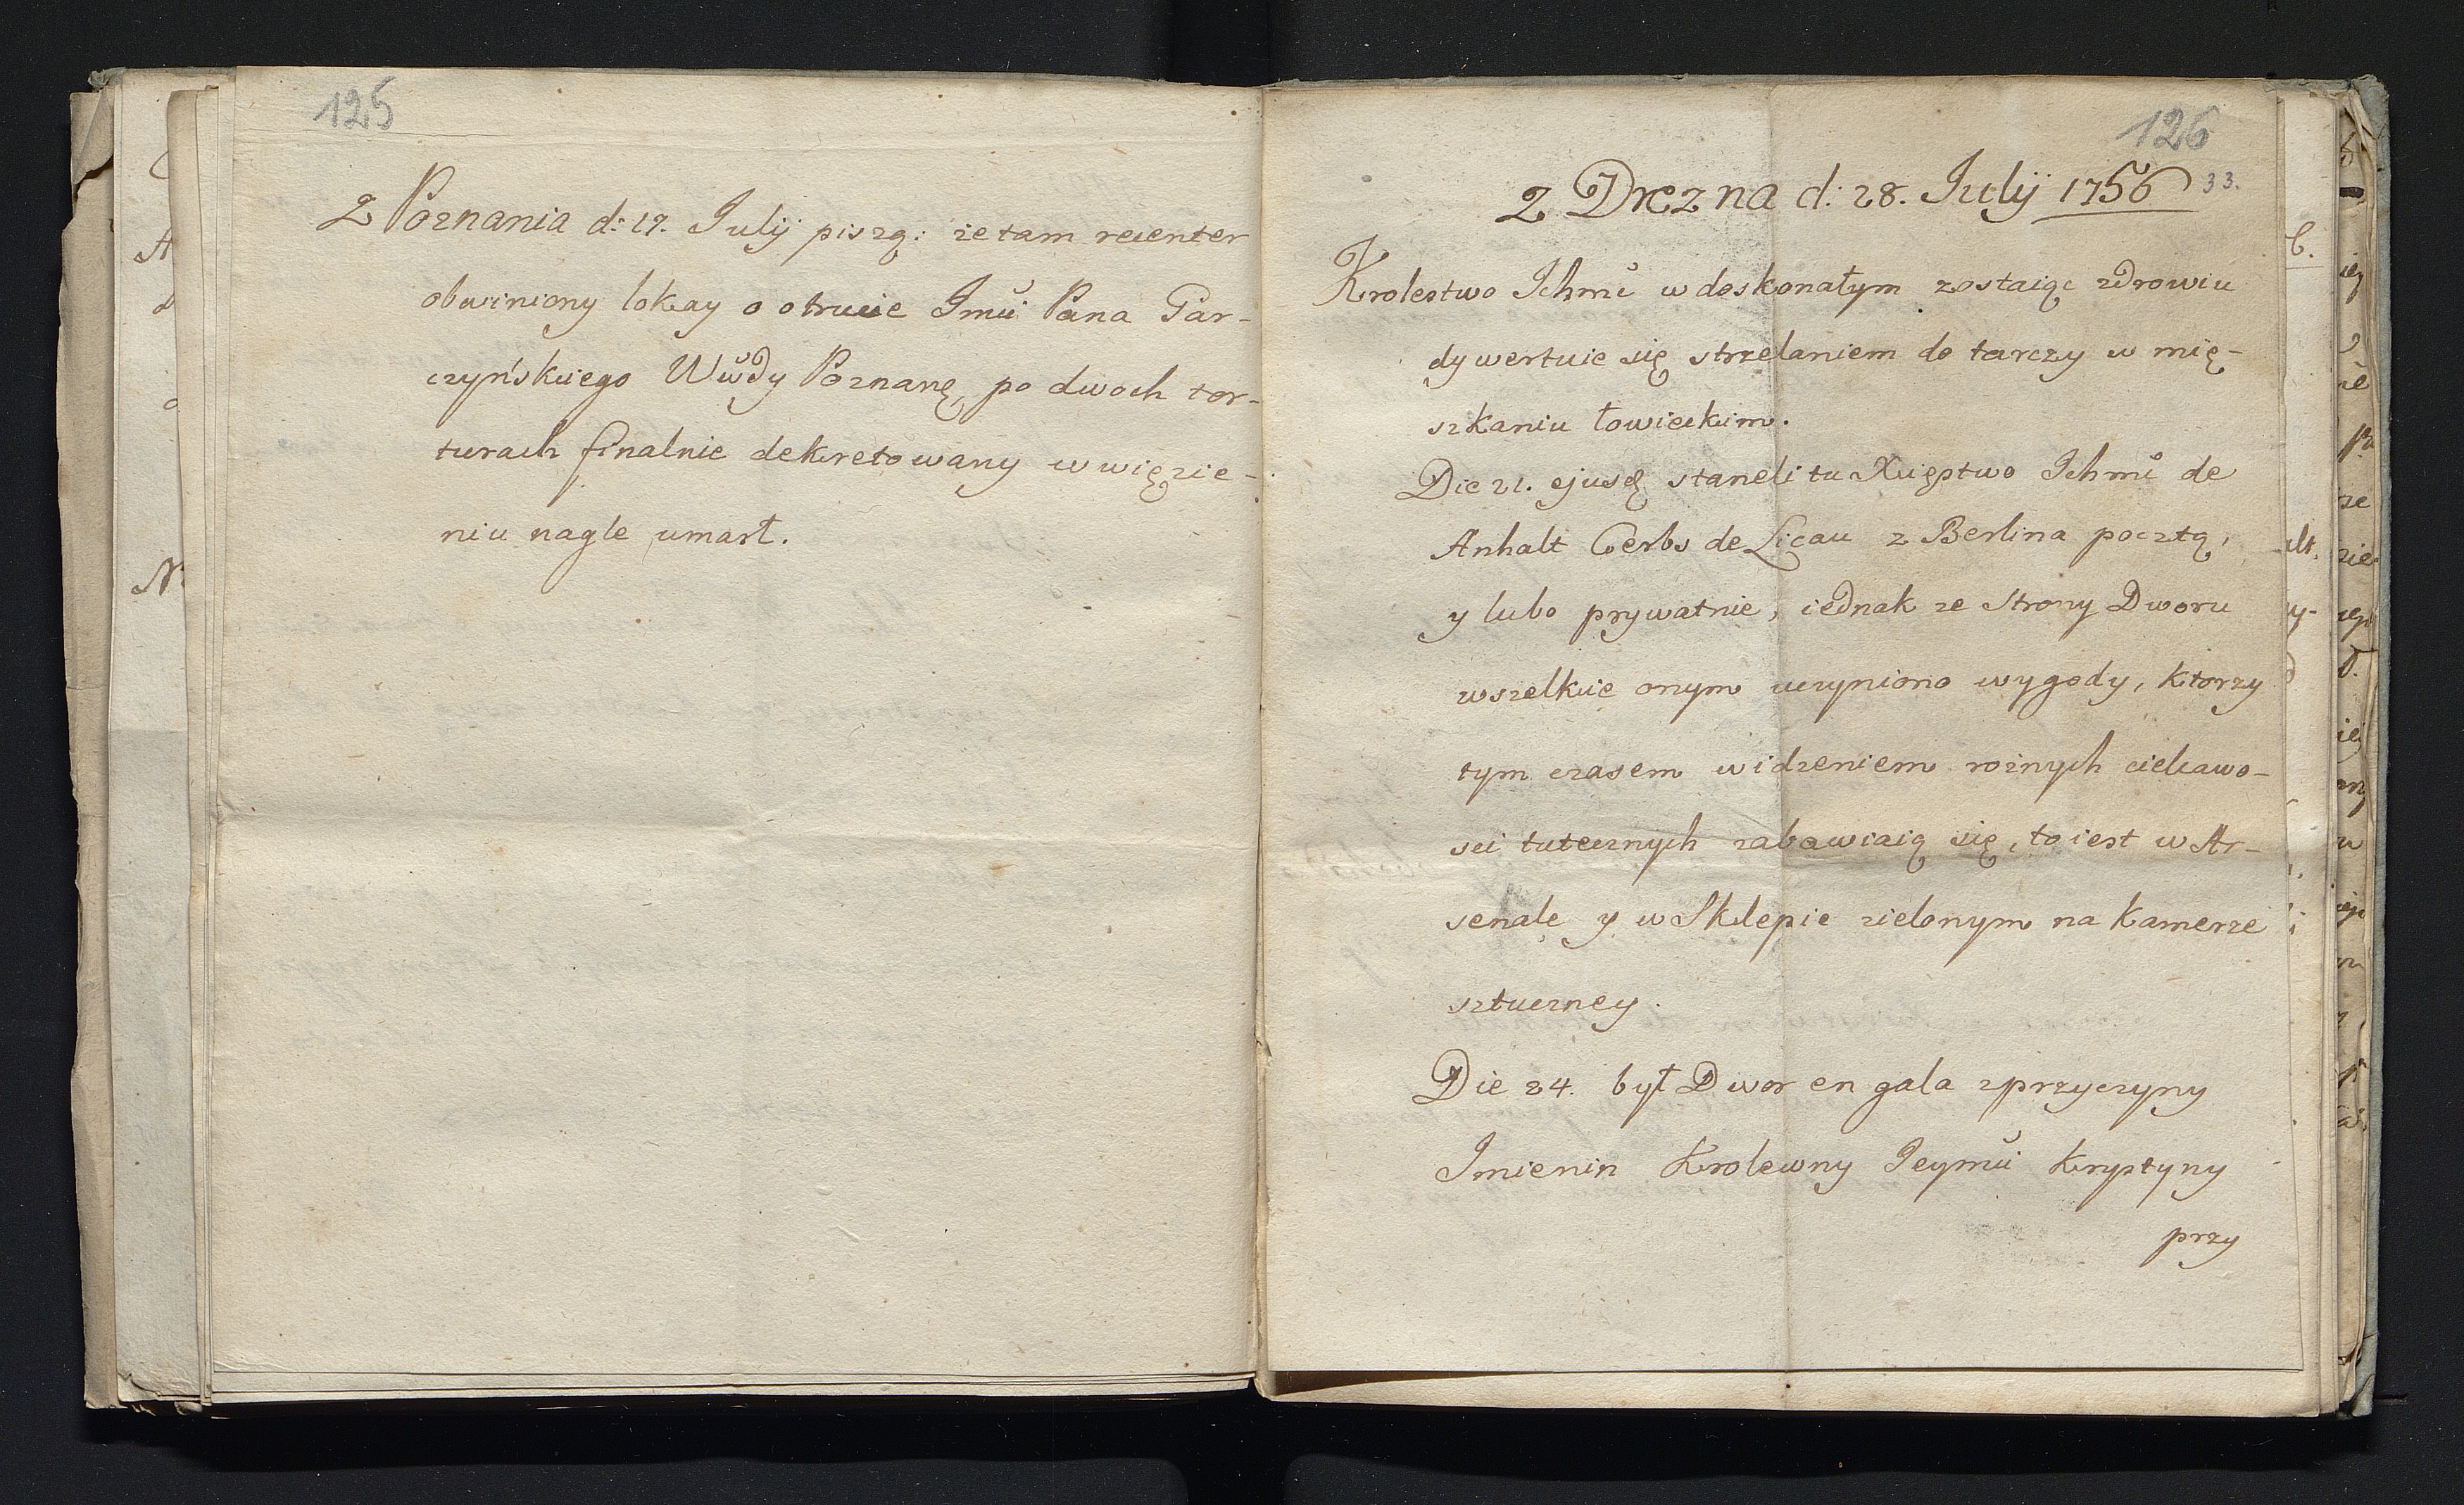 125
Z Poznania d: 17. Julij piszą: że tam recenter
obwiniony lokay o otrucie Jmći Pana Gar-
czyńskiego Wwdy Poznanę, po dwoch tor-
turach finalnie dekretowany w więzie-
niu nagle umarł.
126
33.
Z Drezna d: 28. Julij 1756
Krolestwo Ichmć w doskonałym zostaiąc zdrowiu
dywertuie się strzelaniem do tarczy w mię-
szkaniu łowieckim.
Die 21. ejusd staneli tu Xięstwo Ichmć de
Anhalt Cerbs de Ligau z Berlina pocztą,
y lubo prywatnie, iednak ze Strony Dworu
wszelkie onym uczyniono wygody, ktorzy
tym czasem widzeniem rożnych ciekawo-
sci tutecznych zabawiaią się, to iest w Ar-
senale y w Sklepie zielonym na Kamerze
sztuczney.
Die 24. był Dwor en gala z przyczyny
Jmienin Krolewny Jeymći Krystyny
przy